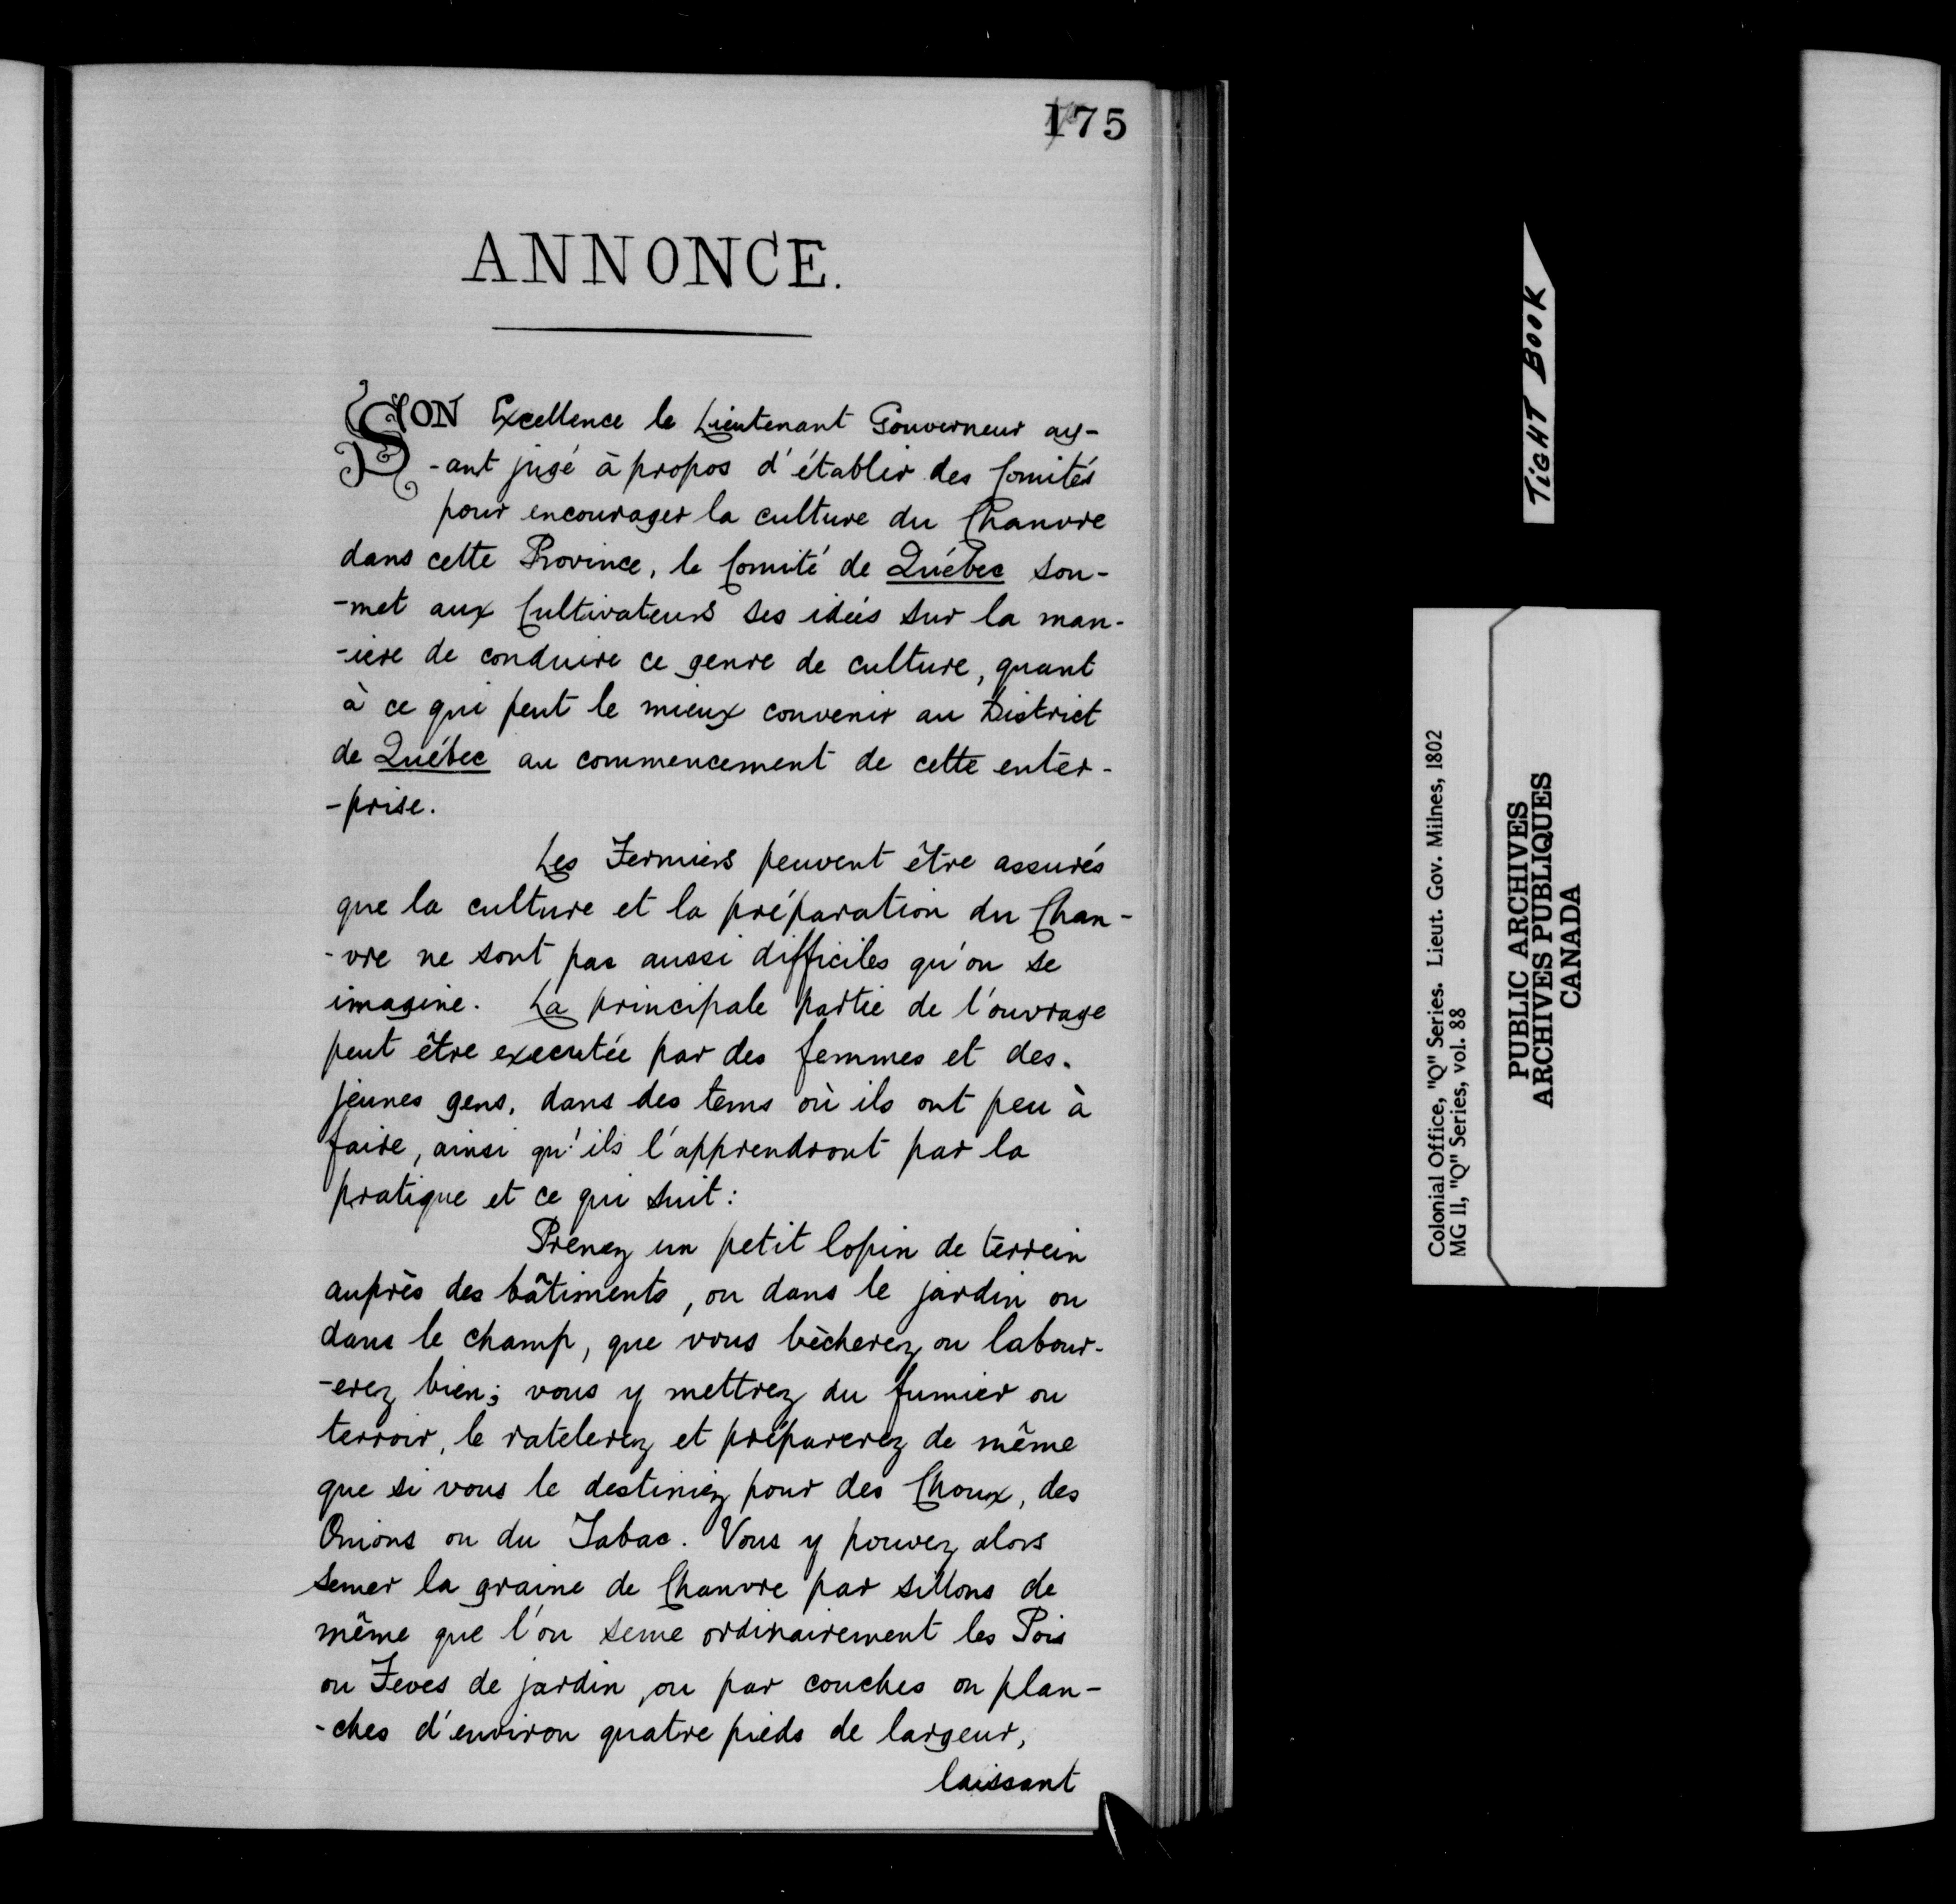 175
ANNONCE.
SON Excellence le Lieutenant Gouverneur ay-
-ant jugé à propos d'établir des Comités
pour encourager la culture du Chanvre
dans cette Province, le Comité de Québec sou-
-met aux Cultivateurs ses idées sur la man-
-iere de conduire ce genre de culture, quant
à ce qui peut le mieux convenir au District
de Québec au commencement de cette enter-
-prise.
Les Fermiers peuvent être assurés
que la culture et la préparation du Chan-
-vre ne sont pas aussi difficiles qu'on se
imagine. La principale partie de l'ouvrage
peut être executée par des femmes et des
jeunes gens, dans des tems où ils ont peu à
faire, ainsi qu'ils l'apprendront par la
pratique et ce qui suit:
Prenez un petit lopin de terrein
auprès des bâtiments, ou dans le jardin ou
dans le champ, que vous bècherez ou labour-
-erez bien; vous y mettrez du fumier ou
terroir, le ratelerez et préparerez de même
que si vous le destiniez pour des Choux, des
Onions ou du Tabac. Vous y pouvez alors
semer la graine de Chanvre par sillons de
même que l'on seme ordinairement les Pois
ou Feves de jardin, ou par couches ou plan-
-ches d'environ quatre pieds de largeur,
laissant
TiGHT BOOK
Colonial Office, "Q" Series. Lieut. Gov. Milnes, 1802
MG II, "Q" Series, vol. 88
PUBLIC ARCHIVES
ARCHIVES PUBLIQUES
CANADA